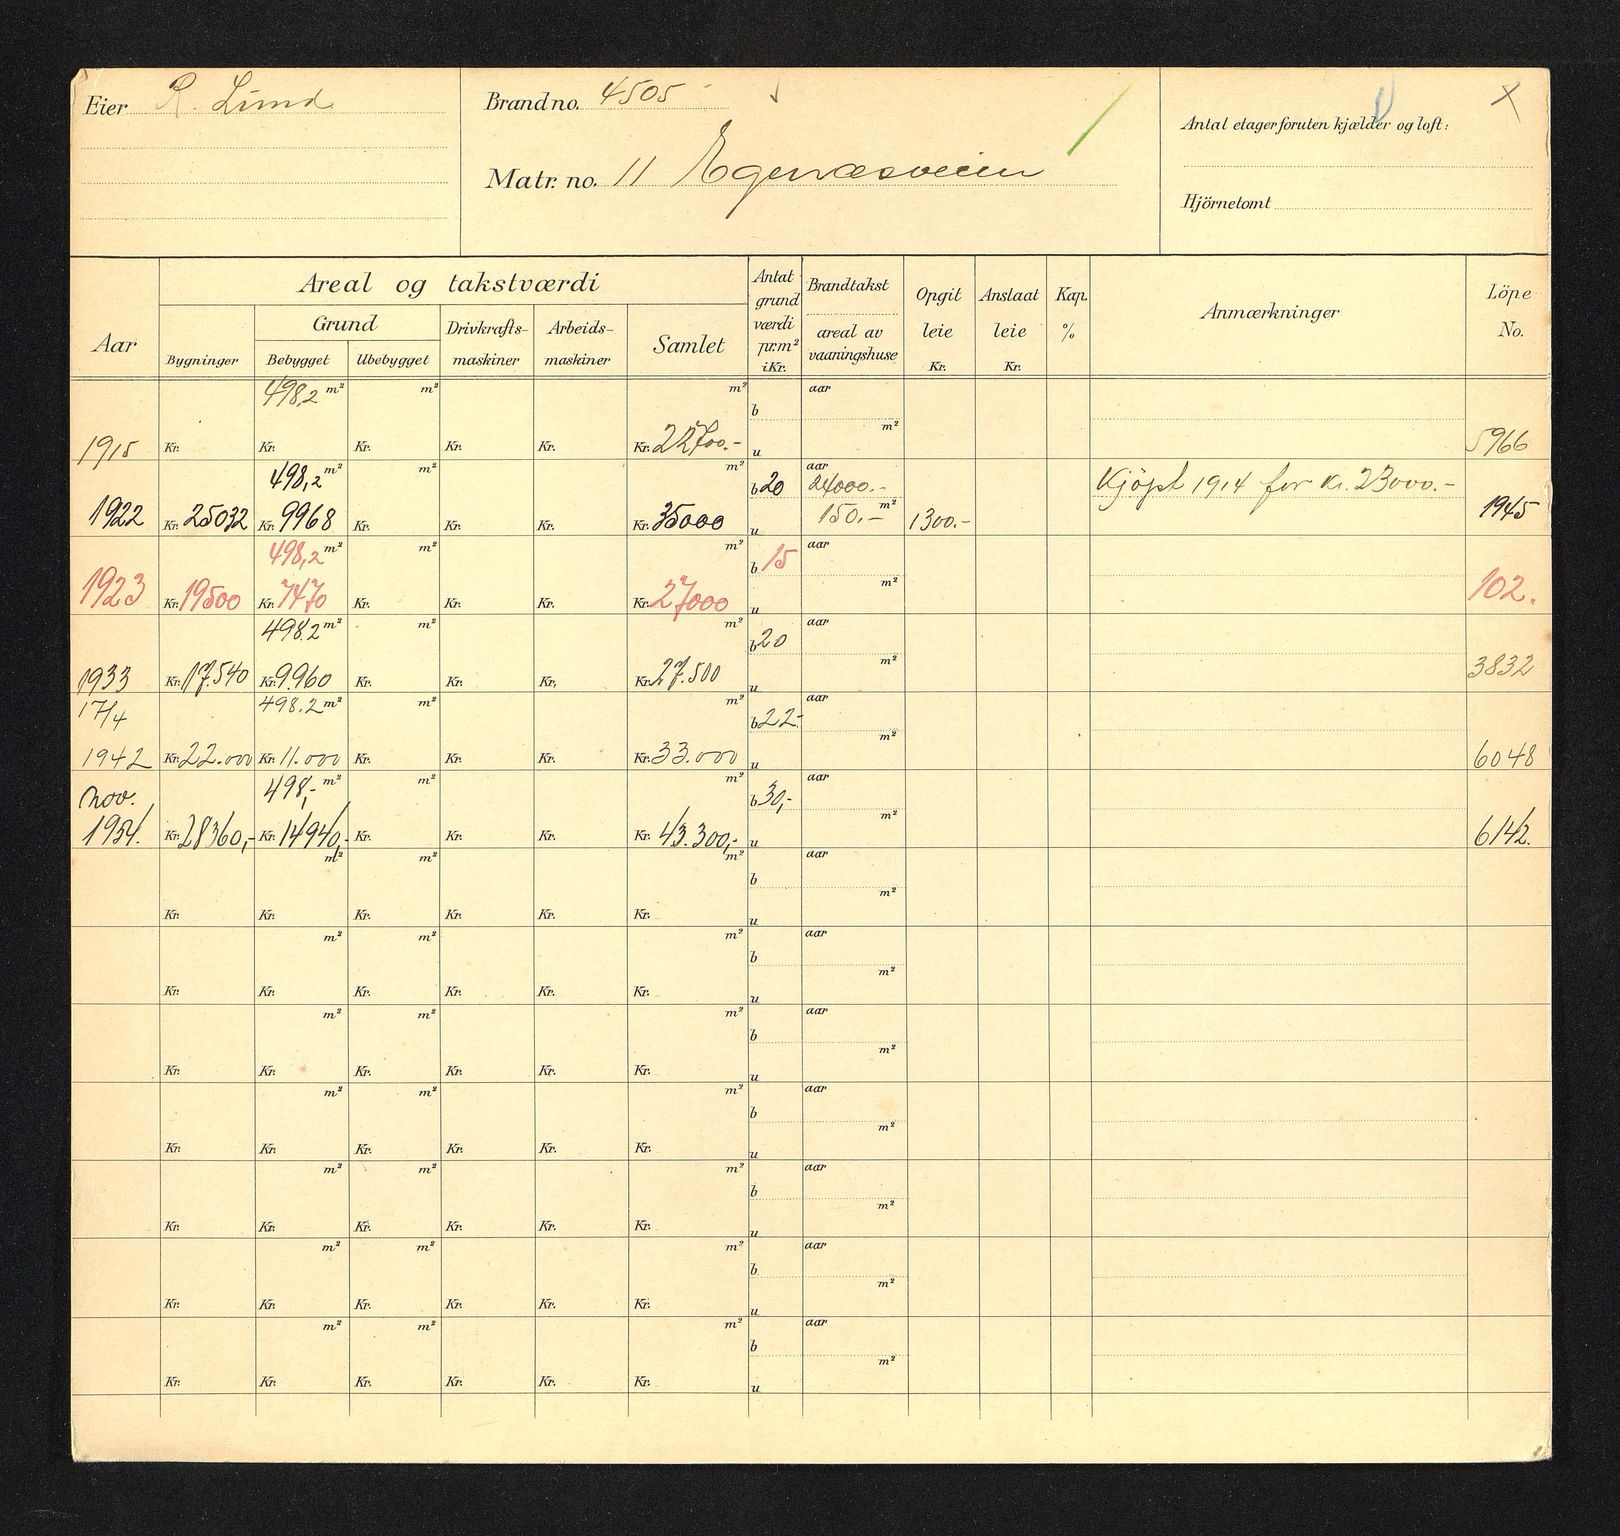 Eier R. Lund
Brand no. 4505
Matr. no. 11 Egenæsveien
Antal etager foruten kjælder og loft:
Hjörnetomt
Aar
Areal og takstværdi
Bygninger
Grund
Bebygget Ubebygget
Drivkrafts-
maskiner
Arbeids-
maskiner
Samlet
Antat
grund
værdi
pr.m²
i Kr.
Brandtakst
areal av
vaaningshuse
Opgit
leie
Kr.
Anslaat
leie
Kr.
Kap.
%
Anmærkninger
Löpe
No.
498,2 m² m² m² b aar
1915 Kr. Kr. Kr. Kr. Kr. Kr. 22700.- u m² 5966
498,2 m² m² m² b 20 aar 24000.- Kjöpt 1914 for Kr. 23000.-
1922 Kr. 25032 Kr. 9968 Kr. Kr. Kr. Kr. 35000 u 150.- m² 1300.- 1945
498,2 m² m² m² b 15 aar
1923 Kr. 19500 Kr. 7470 Kr. Kr. Kr. Kr. 27000 u m² 102.
498.2 m² m² m² b 20 aar
1933 Kr. 17.540 Kr. 9.960 Kr. Kr. Kr. Kr. 27.500 u m² 3832
17/4 498.2 m² m² m² b 22- aar
1942 Kr. 22.000 Kr. 11.000 Kr. Kr. Kr. Kr. 33.000 u m² 6048
nov. 498,- m² m² m² b 30,- aar
1954. Kr. 28360,- Kr. 14940,- Kr. Kr. Kr. Kr. 43.300,- u m² 6142.
m² m² m² b aar
Kr. Kr. Kr. Kr. Kr. Kr. u m²
m² m² m² b aar
Kr. Kr. Kr. Kr. Kr. Kr. u m²
m² m² m² b aar
Kr. Kr. Kr. Kr. Kr. Kr. u m²
m² m² m² b aar
Kr. Kr. Kr. Kr. Kr. Kr. u m²
m² m² m² b aar
Kr. Kr. Kr. Kr. Kr. Kr. u m²
m² m² m² b aar
Kr. Kr. Kr. Kr. Kr. Kr. u m²
m² m² m² b aar
Kr. Kr. Kr. Kr. Kr. Kr. u m²